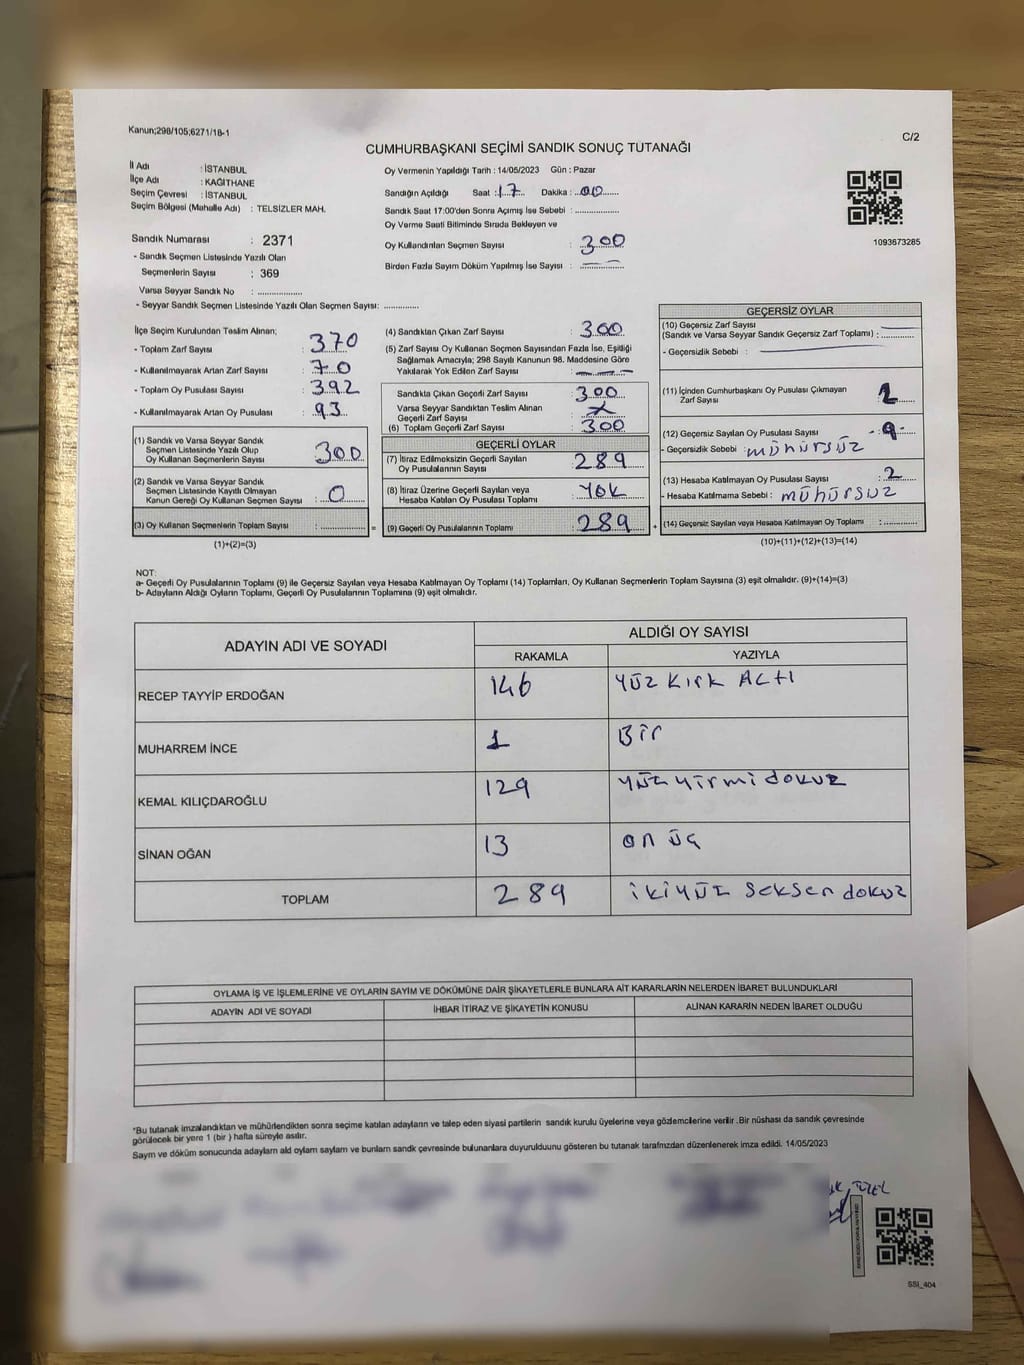 Kanun;298/105;6271/18-1
C/2
CUMHURBAŞKANI SEÇİMİ SANDIK SONUÇ TUTANAĞI
İl Adı : İSTANBUL
İlçe Adı : KAĞITHANE
Seçim Çevresi : İSTANBUL
Seçim Bölgesi (Mahalle Adı) : TELSİZLER MAH.
Oy Vermenin Yapıldığı Tarih : 14/05/2023 Gün : Pazar
Sandığın Açıldığı Saat : 17 Dakika : 00
Sandık Saat 17:00'den Sonra Açımış İse Sebebi :
Oy Verme Saati Bitiminde Sırada Bekleyen ve
Oy Kullandırılan Seçmen Sayısı : 300
Birden Fazla Sayım Döküm Yapılmış İse Sayısı :
1093673285
Sandık Numarası : 2371
- Sandık Seçmen Listesinde Yazılı Olan
Seçmenlerin Sayısı : 369
Varsa Seyyar Sandık No :
- Seyyar Sandık Seçmen Listesinde Yazılı Olan Seçmen Sayısı:
İlçe Seçim Kurulundan Teslim Alınan;
- Toplam Zarf Sayısı : 370
- Kullanılmayarak Artan Zarf Sayısı : 70
- Toplam Oy Pusulası Sayısı : 392
- Kullanılmayarak Artan Oy Pusulası : 93
(1) Sandık ve Varsa Seyyar Sandık
Seçmen Listesinde Yazılı Olup
Oy Kullanan Seçmenlerin Sayısı 300
(2) Sandık ve Varsa Seyyar Sandık
Seçmen Listesinde Kayıtlı Olmayan
Kanun Gereği Oy Kullanan Seçmen Sayısı : 0
(3) Oy Kullanan Seçmenlerin Toplam Sayısı : =
(1)+(2)=(3)
(4) Sandıktan Çıkan Zarf Sayısı : 300
(5) Zarf Sayısı Oy Kullanan Seçmen Sayısından Fazla İse, Eşitliği
Sağlamak Amacıyla; 298 Sayılı Kanunun 98. Maddesine Göre
Yakılarak Yok Edilen Zarf Sayısı :
Sandıkta Çıkan Geçerli Zarf Sayısı : 300
Varsa Seyyar Sandıktan Teslim Alınan
Geçerli Zarf Sayısı :
(6) Toplam Geçerli Zarf Sayısı : 300
GEÇERLİ OYLAR
(7) İtiraz Edilmeksizin Geçerli Sayılan
Oy Pusulalarının Sayısı : 289
(8) İtiraz Üzerine Geçerli Sayılan veya
Hesaba Katılan Oy Pusulası Toplamı : YOK
(9) Geçerli Oy Pusulalarının Toplamı : 289 +
GEÇERSİZ OYLAR
(10) Geçersiz Zarf Sayısı
(Sandık ve Varsa Seyyar Sandık Geçersiz Zarf Toplamı) :
- Geçersizlik Sebebi :
(11) İçinden Cumhurbaşkanı Oy Pusulası Çıkmayan
Zarf Sayısı :
(12) Geçersiz Sayılan Oy Pusulası Sayısı : 9
- Geçersizlik Sebebi : mühürsüz
(13) Hesaba Katılmayan Oy Pusulası Sayısı : 2
- Hesaba Katılmama Sebebi : mühürsüz
(14) Geçersiz Sayılan veya Hesaba Katılmayan Oy Toplamı :
(10)+(11)+(12)+(13)=(14)
NOT:
a- Geçerli Oy Pusulalarının Toplamı (9) ile Geçersiz Sayılan veya Hesaba Katılmayan Oy Toplamı (14) Toplamları, Oy Kullanan Seçmenlerin Toplam Sayısına (3) eşit olmalıdır. (9)+(14)=(3)
b- Adayların Aldığı Oyların Toplamı, Geçerli Oy Pusulalarının Toplamına (9) eşit olmalıdır.
ADAYIN ADI VE SOYADI ALDIĞI OY SAYISI
RAKAMLA YAZIYLA
RECEP TAYYİP ERDOĞAN 146 Yüz Kırk Altı
MUHARREM İNCE 1 Bir
KEMAL KILIÇDAROĞLU 129 yüz yirmi dokuz
SİNAN OĞAN 13 on üç
TOPLAM 289 ikiyüz seksen dokuz
OYLAMA İŞ VE İŞLEMLERİNE VE OYLARIN SAYIM VE DÖKÜMÜNE DAİR ŞİKAYETLERLE BUNLARA AİT KARARLARIN NELERDEN İBARET BULUNDUKLARI
ADAYIN ADI VE SOYADI İHBAR İTİRAZ VE ŞİKAYETİN KONUSU ALINAN KARARIN NEDEN İBARET OLDUĞU
*Bu tutanak imzalandıktan ve mühürlendikten sonra seçime katılan adayların ve talep eden siyasi partilerin sandık kurulu üyelerine veya gözlemcilerine verilir .Bir nüshası da sandık çevresinde
görülecek bir yere 1 (bir ) hafta süreyle asılır.
Sayım ve döküm sonucunda adayların ald oyların sayları ve bunların sandk çevresinde bulunanlara duyurulduunu gösteren bu tutanak tarafmzdan düzenlenerek imza edildi. 14/05/2023
SSI_404